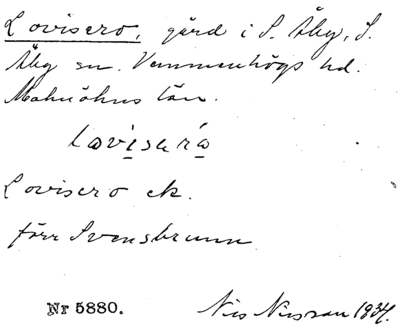 Lovisero, gård i S. Åby, S.
Åby sn. Vemmenhögs hd.
Malmöhus län.
lovisurå
Lovisero ek.
förr Svensbrunn
Nr 5880.
Nils Nilsson 1934.